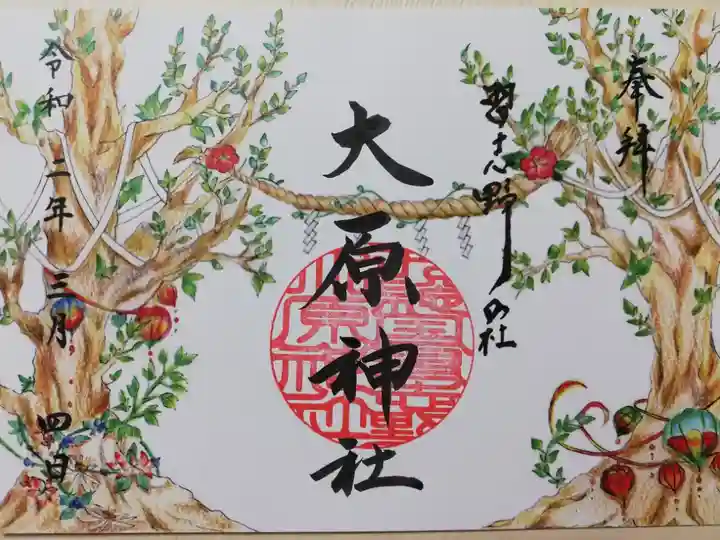 奉拝
習志野の社
大原神社
令和二年三月四日